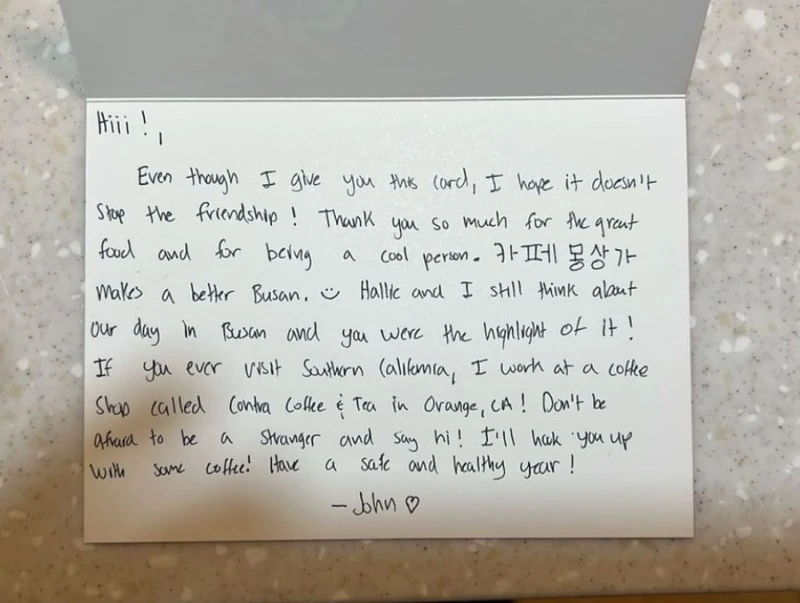 Hiii!,
Even though I give you this card, I hope it doesn't
stop the friendship! Thank you so much for the great
food and for being a cool person. 카페 몽상가
makes a better Busan. Hallie and I still think about
our day in Busan and you were the highlight of it!
If you ever visit Southern California, I work at a coffee
shop called Contra Coffee & Tea in Orange, CA! Don't be
afraid to be a stranger and say hi! I'll hook you up
with some coffee! Have a safe and healthy year!
– John ♡